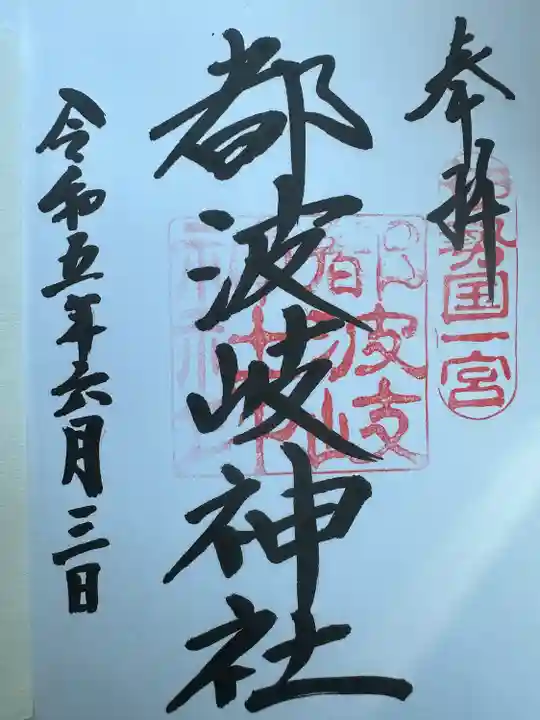 奉拝
伊勢国一宮
都波岐神社
都波岐
令和五年六月三日